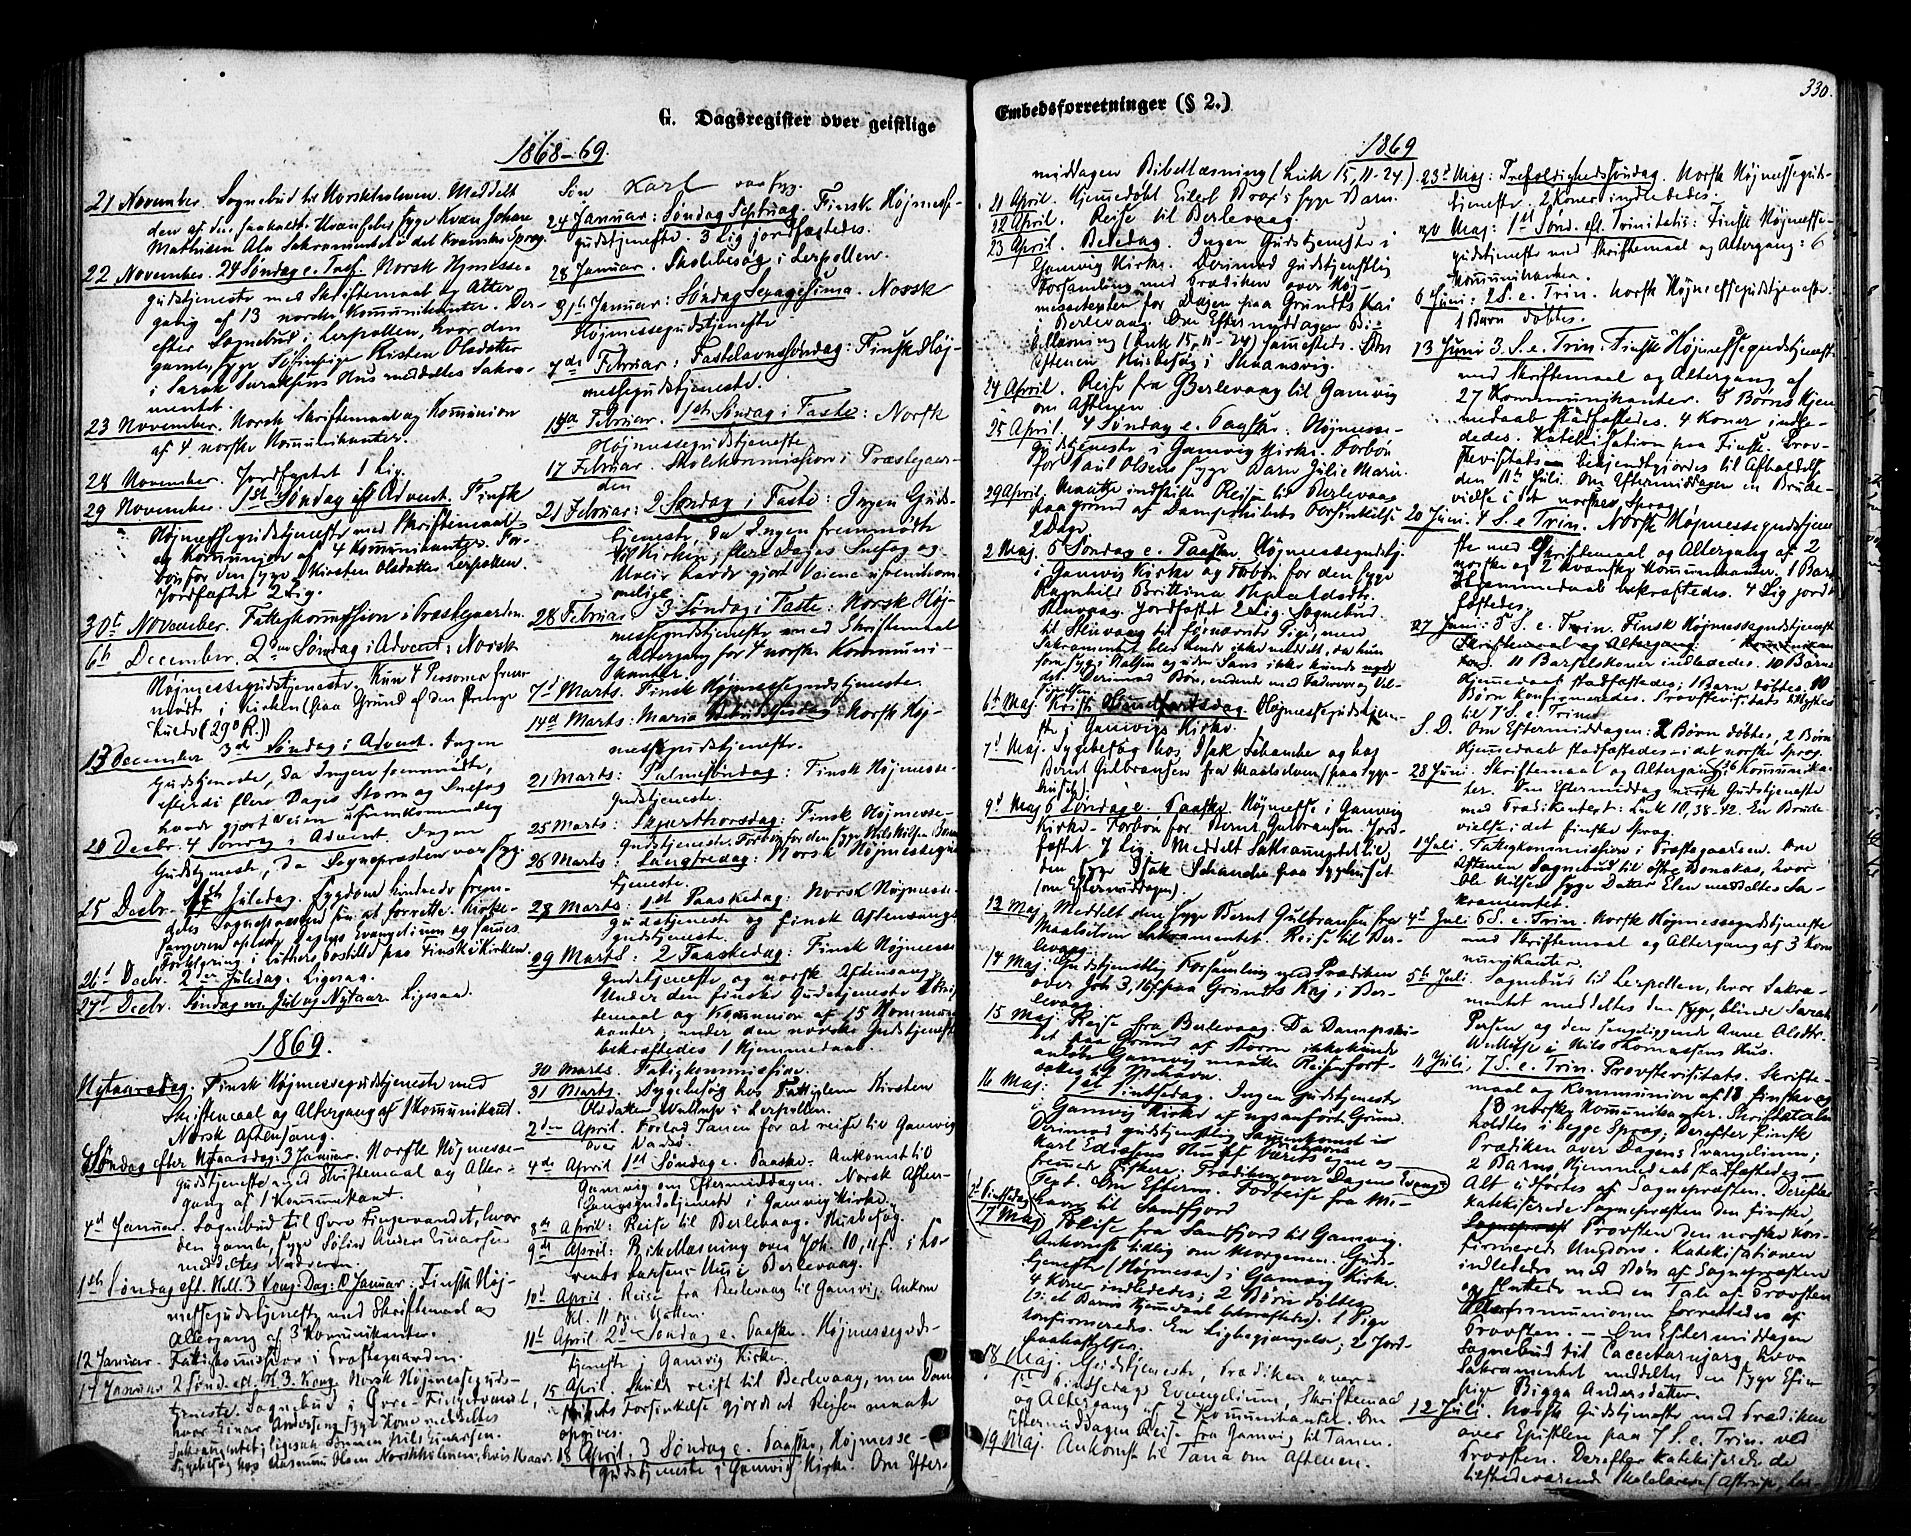 G. Dagsregister over geistlige
1868-69.
21 November. Sognebud til Norskholmen. Meddelt
Mathisen Ala Sakramentet i det kvænske Sprog.
22 November. 24 Søndag e. Tref. Norsk Højmesse-
gudstjeneste med Skriftemaal og Alter
gang af 13 norske Kommunikanter. Der-
efter Sognebud i Lerpollen, hvor den
gamle, syge Risten Olsdatter
i Hus meddeltes Sakra-
mentet.
23 November. Norsk Skriftemaal og Kommunion
af 4 norske Kommunikanter.
28 November. Jordfæstet 1 Lig.
29 November. 1st Søndag i Advent. Finsk
Højmessegudstjeneste med Skriftemaal
og Kommunion af 4 Kommunikanter. For-
bøn for den syge Kirsten Olsdatter Lerpollen.
Jordfæstet 2 Lig.
30t November. Fattigkommission i Præstegaarden.
6th December. 2den Søndag i Advent: Norsk
Højmessegudstjeneste. Kun 4 Personer frem-
mødt i Kirken (paa Grund af den strenge
Kulde (29° R.))
13 December 3d Søndag i Advent. Ingen
Gudstjeneste, da Ingen fremmødte,
efterdi flere Dages Storm og Snefog
havde gjort Veien ufremkommelig
20 Decbr. 4 Søndag i Advent. Ingen
Gudstjeneste, da Sognepræsten var syg.
25 Decbr. 1ste Juledag. Sygdom hindrede frem-
deles Sognepræsten fra at forrette. Kirke-
sangeren oplæste Dagens Evangelium og
Forklaring i Luthers Postille paa Finsk i Kirken.
26d Decbr. 2den Juledag. Ligesaa.
27d Decbr. Søndag m. Jul og Nytaar. Ligesaa.
1869.
Nytaarsdag. Finsk Højmessegudstjeneste med
Skriftemaal og Altergang af 1 Kommunikant.
Norsk Aftensang.
Søndag efter Nytaarsdag: 3 Januar. Norsk Højmesse-
gudstjeneste med Skriftemaal og Alter-
gang af 1 Kommunikant.
4d Januar. Sognebud til Øvre Fingervandet, hvor
den gamle, syge Anders Einarsen
meddeltes Nadveren.
1st Søndag eft. Hell. 3 Kong. Dag: 10 Januar: Finsk Høj-
messegudstjeneste med Skriftemaal og
Altergang af 3 Kommunikanter.
12 Januar. Fattigkommission i Præstegaarden.
17 Januar 2 Sønd. eft. H. 3. Kong. Norsk Højmessegud-
tjeneste. Sognebud i Øvre-Fingervandet,
hvor Einar Andersens syge Kone meddeltes
Sakramentet; ligesaa Nils Einarsen.
Sygebesøg hos Rasmus Olsen Norskholmen, hvis
Søn Karl var syg.
24 Januar: Søndag Septuag. Finsk Højmesse-
gudstjeneste. 3 Lig jordfæstedes.
28 Januar. Skolebesøg i Lerpollen.
31th Januar: Søndag Sexagesima. Norsk
Højmessegudstjeneste
7de Februar: Fastelavnssøndag: Finsk Høj-
messegudstjeneste.
14d Februar. 1ste Søndag i Faste: Norsk
Højmessegudstjeneste
17 Februar. Skolekommission i Præstegaar-
den
21 Februar: 2 Søndag i Faste: Ingen Guds-
tjeneste, da Ingen fremmødte
til Kirken; flere Dages Snefog og
Uveir havde gjort Veiene ufremkom-
melige.
28 Februar 3 Søndag i Faste: Norsk Høj-
messegudstjeneste med Skriftemaal
og Altergang for 4 norske Kommuni-
kanter.
7d Marts. Finsk Højmessegudstjeneste.
14d Marts: Maria Bebudelsesdag: Norsk Høj-
messegudstjeneste.
21 Marts: Palmesøndag: Finsk Højmesse-
gudstjeneste.
25 Marts: Skjærthorsdag: Finsk Højmesse-
gudstjeneste. Forbøn for den syge
26 Marts: Langfredag: Norsk Højmessegud-
tjeneste.
28 Marts: 1st Paaskedag: Norsk Højmesse-
gudstjeneste og finsk Aftensangs
gudstjeneste.
29 Marts: 2 Paaskedag: Finsk Højmesse
gudstjeneste og norsk Aftensang
Under den finske Gudstjeneste Skrif
temaal og Kommunion af 15 Kommuni
kanter; under den norske Gudstjeneste
bekræftedes 1 Hjemmedaab.
30 Marts. Fattigkommission.
31 Marts. Sygebesøg hos Fattiglem Kirsten
Olsdatter i Lerpollen.
2den April. Forlod Tanen for at reise til Gamvig
over Vadsø.
4de April 1st Søndag e. Paaske. Ankomst til
Gamvig om Eftermiddagen. Norsk Aften-
sangsgudstjeneste i Gamvig Kirke.
8de April: Reise til Berlevaag. Husbesøg.
9de April: Bibellæsning over Joh. 10, 11f. i Lo-
rents Larsens Hus i Berlevaag.
10d April. Reise fra Berlevaag til Gamvig, Ankom
Kl. 11 om Natten.
11t April 2d Søndag e. Paaske. Højmessegud-
tjeneste i Gamvig Kirke.
15 April. Skulde reist til Berlevaag, men Damp
skibets Forsinkelse gjorde at Reisen maatte
opgives.
18 April. 3 Søndag e. Paaske, Højmesse-
gudstjeneste i Gamvig Kirke. Om Efter-
Embedsforretninger (§ 2.)
330.
1869
middagen Bibellæsning (Luk 15, 11-24).
21 April. Hjemmedøbt Eilert Brox's syge Barn.
22 April. Reise til Berlevaag.
23 April. Bededag. Ingen Gudstjeneste i
Gamvig Kirke. Derimod Gudstjenstlig
Forsamling med Prædiken over Høj-
messeteksten for Dagen paa Grundts Kai
i Berlevaag. Om Eftermiddagen Bi-
bellæsning (Luk 15, 11-24) sammesteds. Om
Aftenen Husbesøg i Skaansvig.
24 April. Reise fra Berlevaag til Gamvig
om Aftenen
25 April. 4 Søndag e. Paaske. Højmesse-
gudstjeneste i Gamvig Kirke. Forbøn
for Paul Olsens syge Barn Julie Marie
29 April. Maatte indstille Reise til Berlevaag
paa Grund af Dampskibets Forsinkelse
2 Dage.
2 Maj. 5 Søndag e. Paaske Højmessegudstj.
i Gamvig Kirke og Forbøn for den syge
Ragnhild Brittina
Jordfæstet 2 Lig. Sognebud
til
Sakramentet blev hende ikke meddelt, da hun
6th Maj. Kristi Himmelfartsdag. Højmessegudstjene-
ste i Gamvig Kirke.
7d Maj. Sygebesøg hos Isak og hos
Bernt Gulbransen fra Maalselven (paa Syge-
huset)
9d Maj 6 Søndag e. Paaske Højmesse i Gamvig
Kirke. Forbøn for Bernt Gulbransen. Jord-
fæstet 7 Lig. Meddelt Sakramentet til
den syge Isak paa Sygehuset
(om Eftermiddagen).
12 Maj. Meddelt den syge Bernt Gulbransen fra
Maalselven Sakramentet. Reise til Ber-
levaag.
14 Maj. Gudstjenstlig Forsamling med Prædiken
over Joh 3, 16f paa Grundts Kaj i Ber-
levaag.
15 Maj. Reise fra Berlevaag. Da Dampski-
bet paa Grund af Storm ikke kunde
anløbe Gamvig maatte Reisen fort-
sættes til Mehavn.
16 Maj: 1st Pintsedag. Ingen Gudstjeneste
i Gamvig Kirke af nysanførte Grund.
Derimod gudstjenstlig Sammenkomst i
Karl Edissens Hus af Værets egne og
fremmede Fiskere. Prædiken over Dagens Evangel.
Text. Om Efterm. Fortreise fra Me-
havn til Sandfjord
2d Pintsedag
17 Maj Reise fra Sandfjord til Gamvig.
Ankomst tidlig om Morgenen. Gud-
tjeneste (Højmesse) i Gamvig Kirke.
4 Koner indledtes; 2 Børn døbtes
et Barns Hjemmedaab bekræftedes. 1 Pige
konfirmeredes. En Ligbegjængelse; 2 Jord-
paakastelser.
18 Maj. Gudstjeneste, Prædiken over
1st Pintsedags Evangelium, Skriftemaal
og Altergang af 2 Kommunikanter. Om
Eftermiddagen Reise fra Gamvig til Tanen.
19 Maj. Ankomst til Tana om Aftenen.
23d Maj: Trefoldighedssøndag. Norsk Højmessegud-
tjeneste. 2 Koner indlededes.
30 Maj: 1st Sønd. eft. Trinitatis: Finsk Højmesse-
gudstjeneste med Skriftemaal og Altergang: 6
Kommunikanter.
6 Juni: 2 S. e. Trin. Norsk Højmessegudstjeneste.
1 Barn døbtes.
13 Juni 3. S. e. Trin. Finsk Højmessegudstjeneste
med Skriftemaal og Altergang af
27 Kommunikanter. 3 Børns Hjem
medaab stadfæstedes. 4 Koner indle-
dedes. Katekisation paa Finsk. Prov-
stevisitats bekjendtgjordes til Afholdelse
den 11te Juli. Om Eftermiddagen en Brude-
vielse i det norske Sprog
20 Juni. 4 S. e Trin. Norsk Højmessegudstjene
ste med Skriftemaal og Altergang af 2
norske og 2 kvænske Kommunikanter. 1 Barns
Hjemmedaab bekræftedes. 4 Lig jord-
fæstedes.
27 Juni: 5 S. e. Trin. Finsk Højmessegudstjeneste
Skriftemaal og Altergang.
11 Barselskoner indlededes. 10 Børns
Hjemmedaab stadfæstedes; 1 Barn døbtes. 10
Børn konfirmeredes. Provstevisitats
til 7 S. e. Trin.
S. D. Om Eftermiddagen: 2 Børn døbtes, 2 Børns
Hjemmedaab stadfæstedes - i det norske Sprog
28 Juni. Skriftemaal og Altergang 36 Kommunikan-
ter. Om Eftermiddag norsk Gudstjeneste
med Prædikentext: Luk 10, 38-42. En Brude
vielse i det finske Sprog.
1 Juli. Fattigkommission i Præstegaarden. Om
Aftenen Sognebud til Østre Bonakas, hvor
Ole Nilsens syge Datter Elen meddeltes Sa-
kramentet.
4d Juli 6 S. e. Trin. Norsk Højmessegudstjeneste
med Skriftemaal og Altergang af 3 Kom
munikanter.
5th Juli. Sognebud til Lerpollen, hvor Sakra-
mentet meddeltes den syge, blinde Sarah
Persen og den sengeliggende Anne Olsdtr.
i Nils Thomassens Hus.
11 Juli, 7 S. e. Trin. Provstevisitats. Skrifte-
maal og Kommunion af 18 finske og
13 norske Kommunikanter. Skriftetale
holdtes i begge Sprog; Derefter finsk
Prædiken over Dagens Evangelium;
2 Barns Hjemmedaab stadfæstedes -
Alt udførtes af Sognepræsten. Derefter
katekiserede Sognepræsten den finske,
Sognepræst Provsten den norske Kon-
firmerede Ungdom. Katekisationen
indledes med Bøn af Sognepræsten
og sluttede med en Tale af Provsten
Alterkommunionen forrettedes af
Provsten. - Om Eftermiddagen
Sognebud til Caccetarnjarg, hvor
Sakramentet meddeltes en syge
Pige Bigga Andersdatter.
12 Juli. Norsk Gudstjeneste med Prædiken
over Epistlen paa 7 S. e. Trin. ved
Provsten. Derefter katekiserede de
tilstedeværende Skolelærere (Astrup,